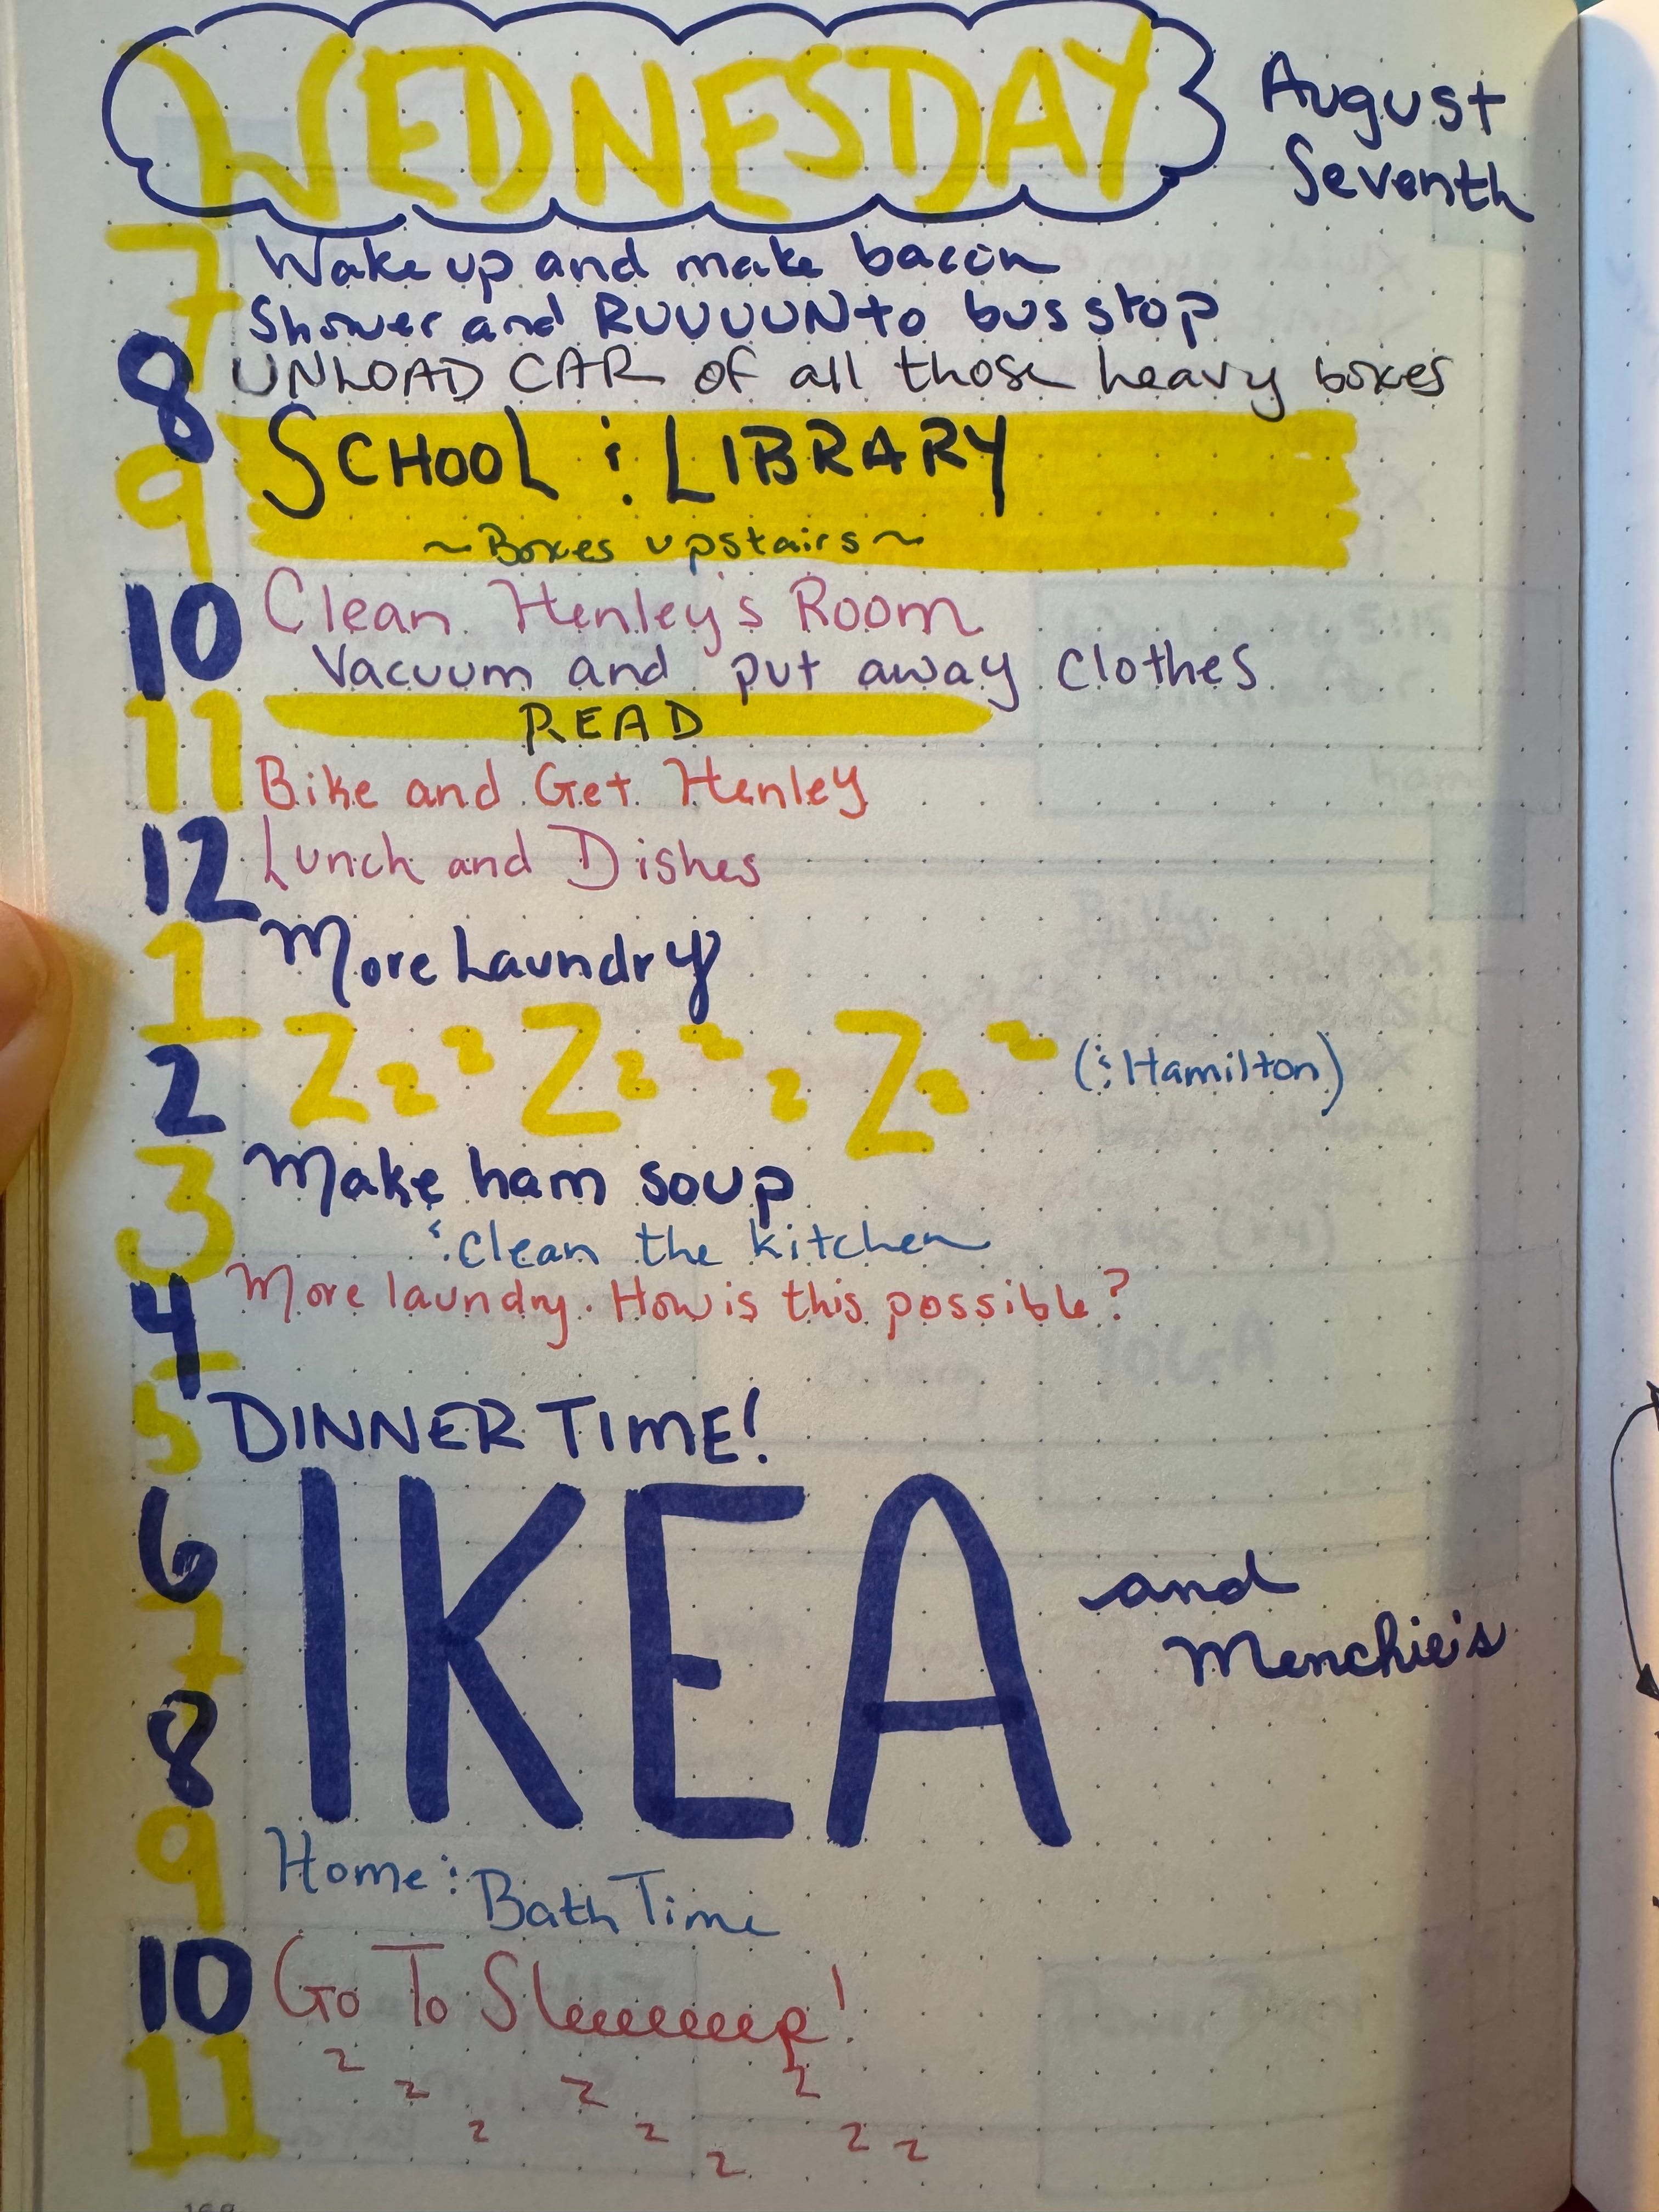 WEDNESDAY
August
Seventh
7 Wake up and make bacon
Shower and RUUUUUN to bus stop
8 UNLOAD CAR of all those heavy boxes
SCHOOL & LIBRARY
9
~Boxes upstairs~
10 Clean Henley's Room
Vacuum and put away clothes
11 READ
Bike and Get Henley
12 Lunch and Dishes
1 More Laundry
2 Zzz Zzz zZzz (& Hamilton)
3 Make ham soup
& clean the kitchen
4 More laundry. How is this possible?
5 DINNER TIME!
6
7
8
IKEA and
Menchie's
9 Home &
Bath Time
10 Go To Sleeeeeeep!
11 z z z z z z z z z